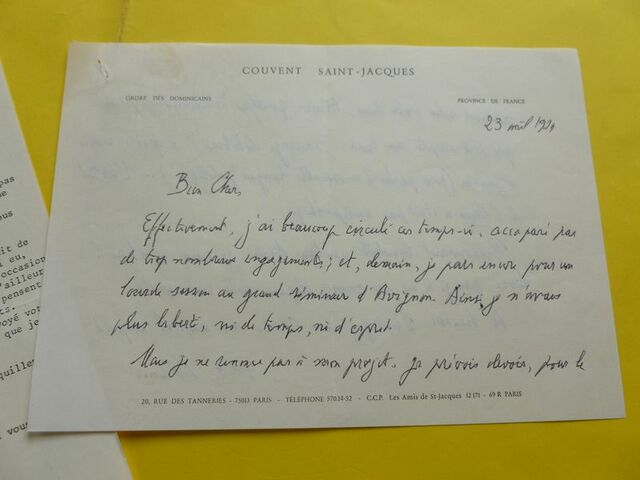 COUVENT SAINT-JACQUES
ORDRE DES DOMINICAINS
PROVINCE DE FRANCE
23 avril
Bien Chers,
Effectivement, j'ai beaucoup circulé ces temps-ci, accaparé par
de trop nombreux engagements; et, demain, je pars encore pour un
lourde session au grand séminaire d'Avignon. Ainsi, je n'avais
plus liberté, ni de temps, ni d'esprit.
Mais je ne renonce pas à mon projet. Je prévois devoir, pour le
20, RUE DES TANNERIES - 75013 PARIS - TÉLÉPHONE 570.14-52 - C.C.P. Les Amis de St-Jacques 12.171 - 69 R PARIS
pas
ous
it de
eu,
occasion
'ailleur
pensent
ts.
voyé vot
que je
quillet
vous